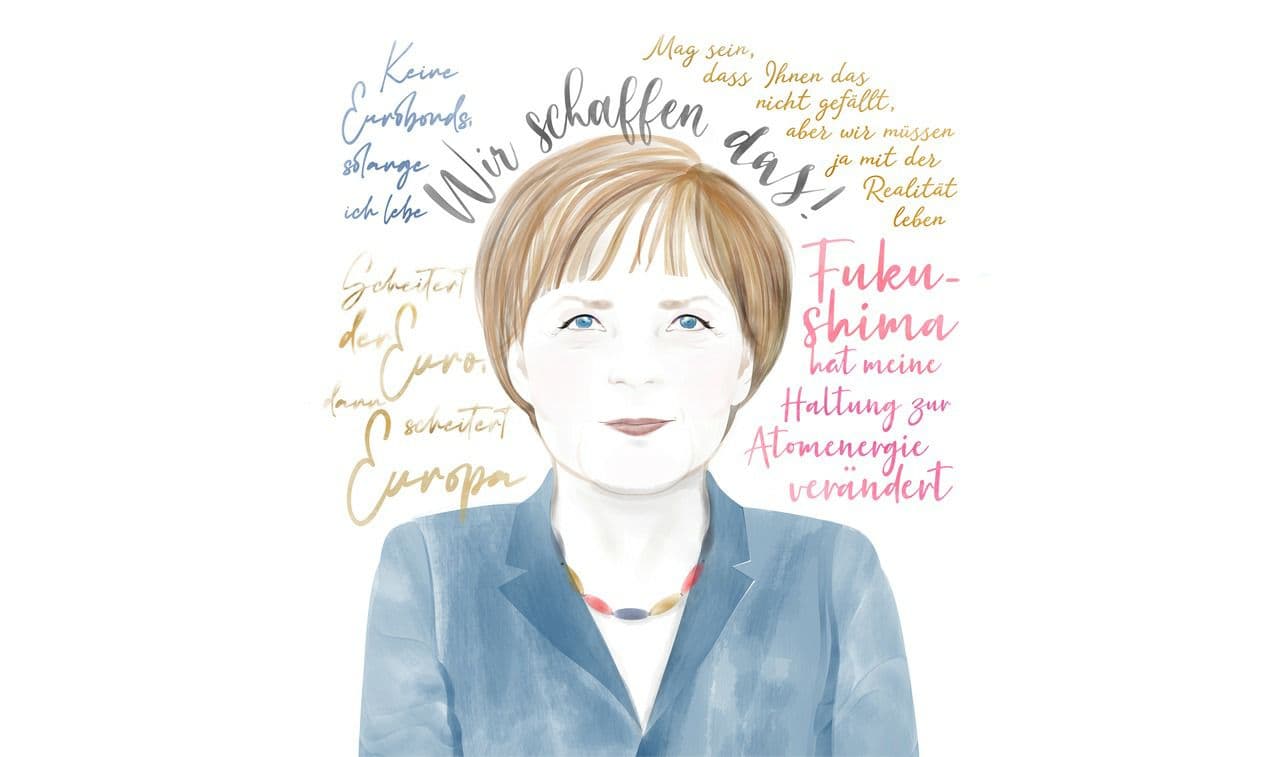 Keine
Eurobonds,
solange
ich lebe
Wir schaffen das!
Mag sein,
dass Ihnen das
nicht gefällt,
aber wir müssen
ja mit der
Realität
leben
Scheitert
der Euro,
dann
scheitert
Europa
Fuku-
shima
hat meine
Haltung zur
Atomenergie
verändert